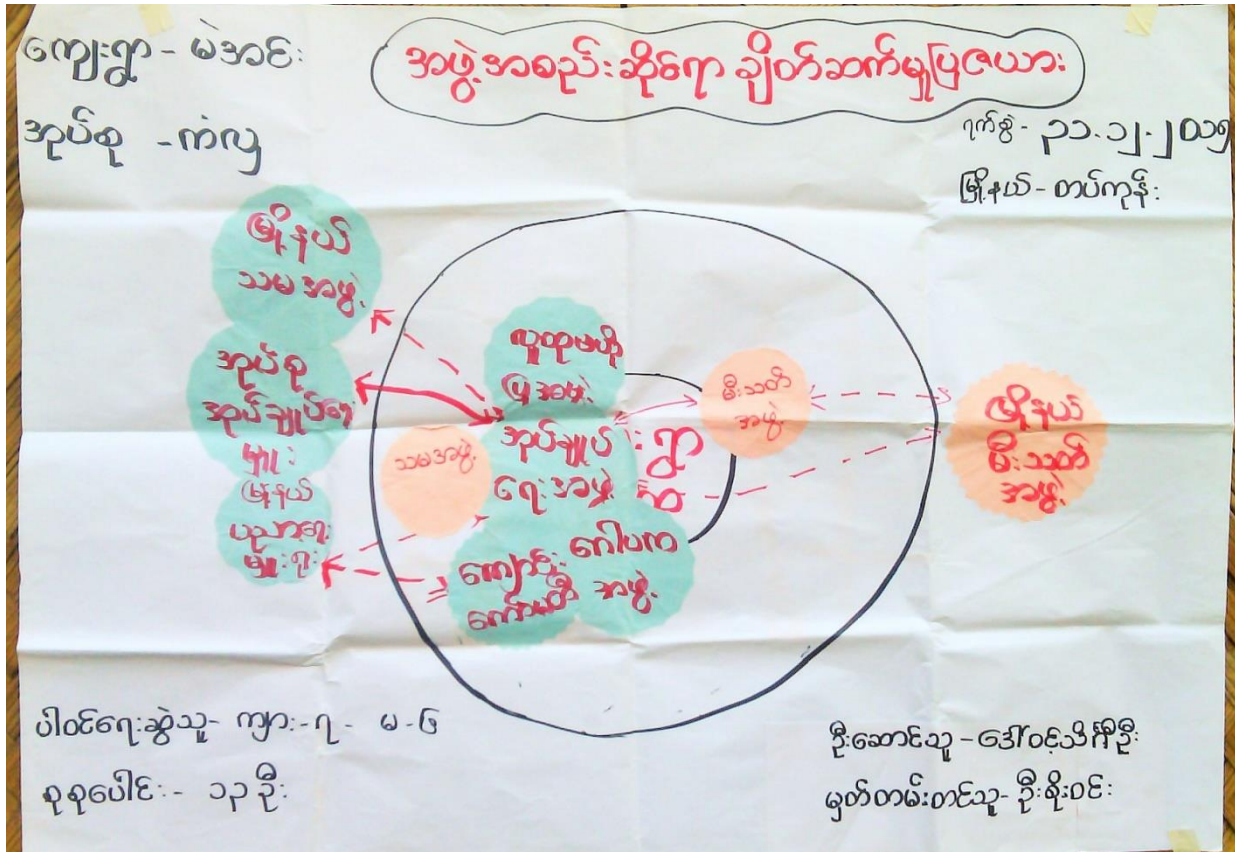 ကျေးရွာ - မဲအင်း
အုပ်စု - ကံလှ
အဖွဲ့အစည်းဆိုင်ရာ ချိတ်ဆက်မှုပြဇယား
ရက်စွဲ - ၃၁.၁၂.၂၀၁၅
မြို့နယ် - တပ်ကုန်း
မြို့နယ်
သမအဖွဲ့
အုပ်စု
အုပ်ချုပ်ရေး
မှူး
မြို့နယ်
ပညာရေး
မှူးရုံး
လူထုဗဟို
ပြုအဖွဲ့
သမအဖွဲ့
အုပ်ချုပ်
ရေးအဖွဲ့
းရွာ
ကျောင်း
ကော်မတီ
ဂေါပက
အဖွဲ့
မီးသတ်
အဖွဲ့
မြို့နယ်
မီးသတ်
အဖွဲ့
ပါဝင်ရေးဆွဲသူ - ကျား - ၇ - မ - ၆
စုစုပေါင်း - ၁၃ ဦး
ဦးဆောင်သူ - ဒေါ်ဝင့်သိင်္ဂီဦး
မှတ်တမ်းတင်သူ - ဦးစိုးဝင်း